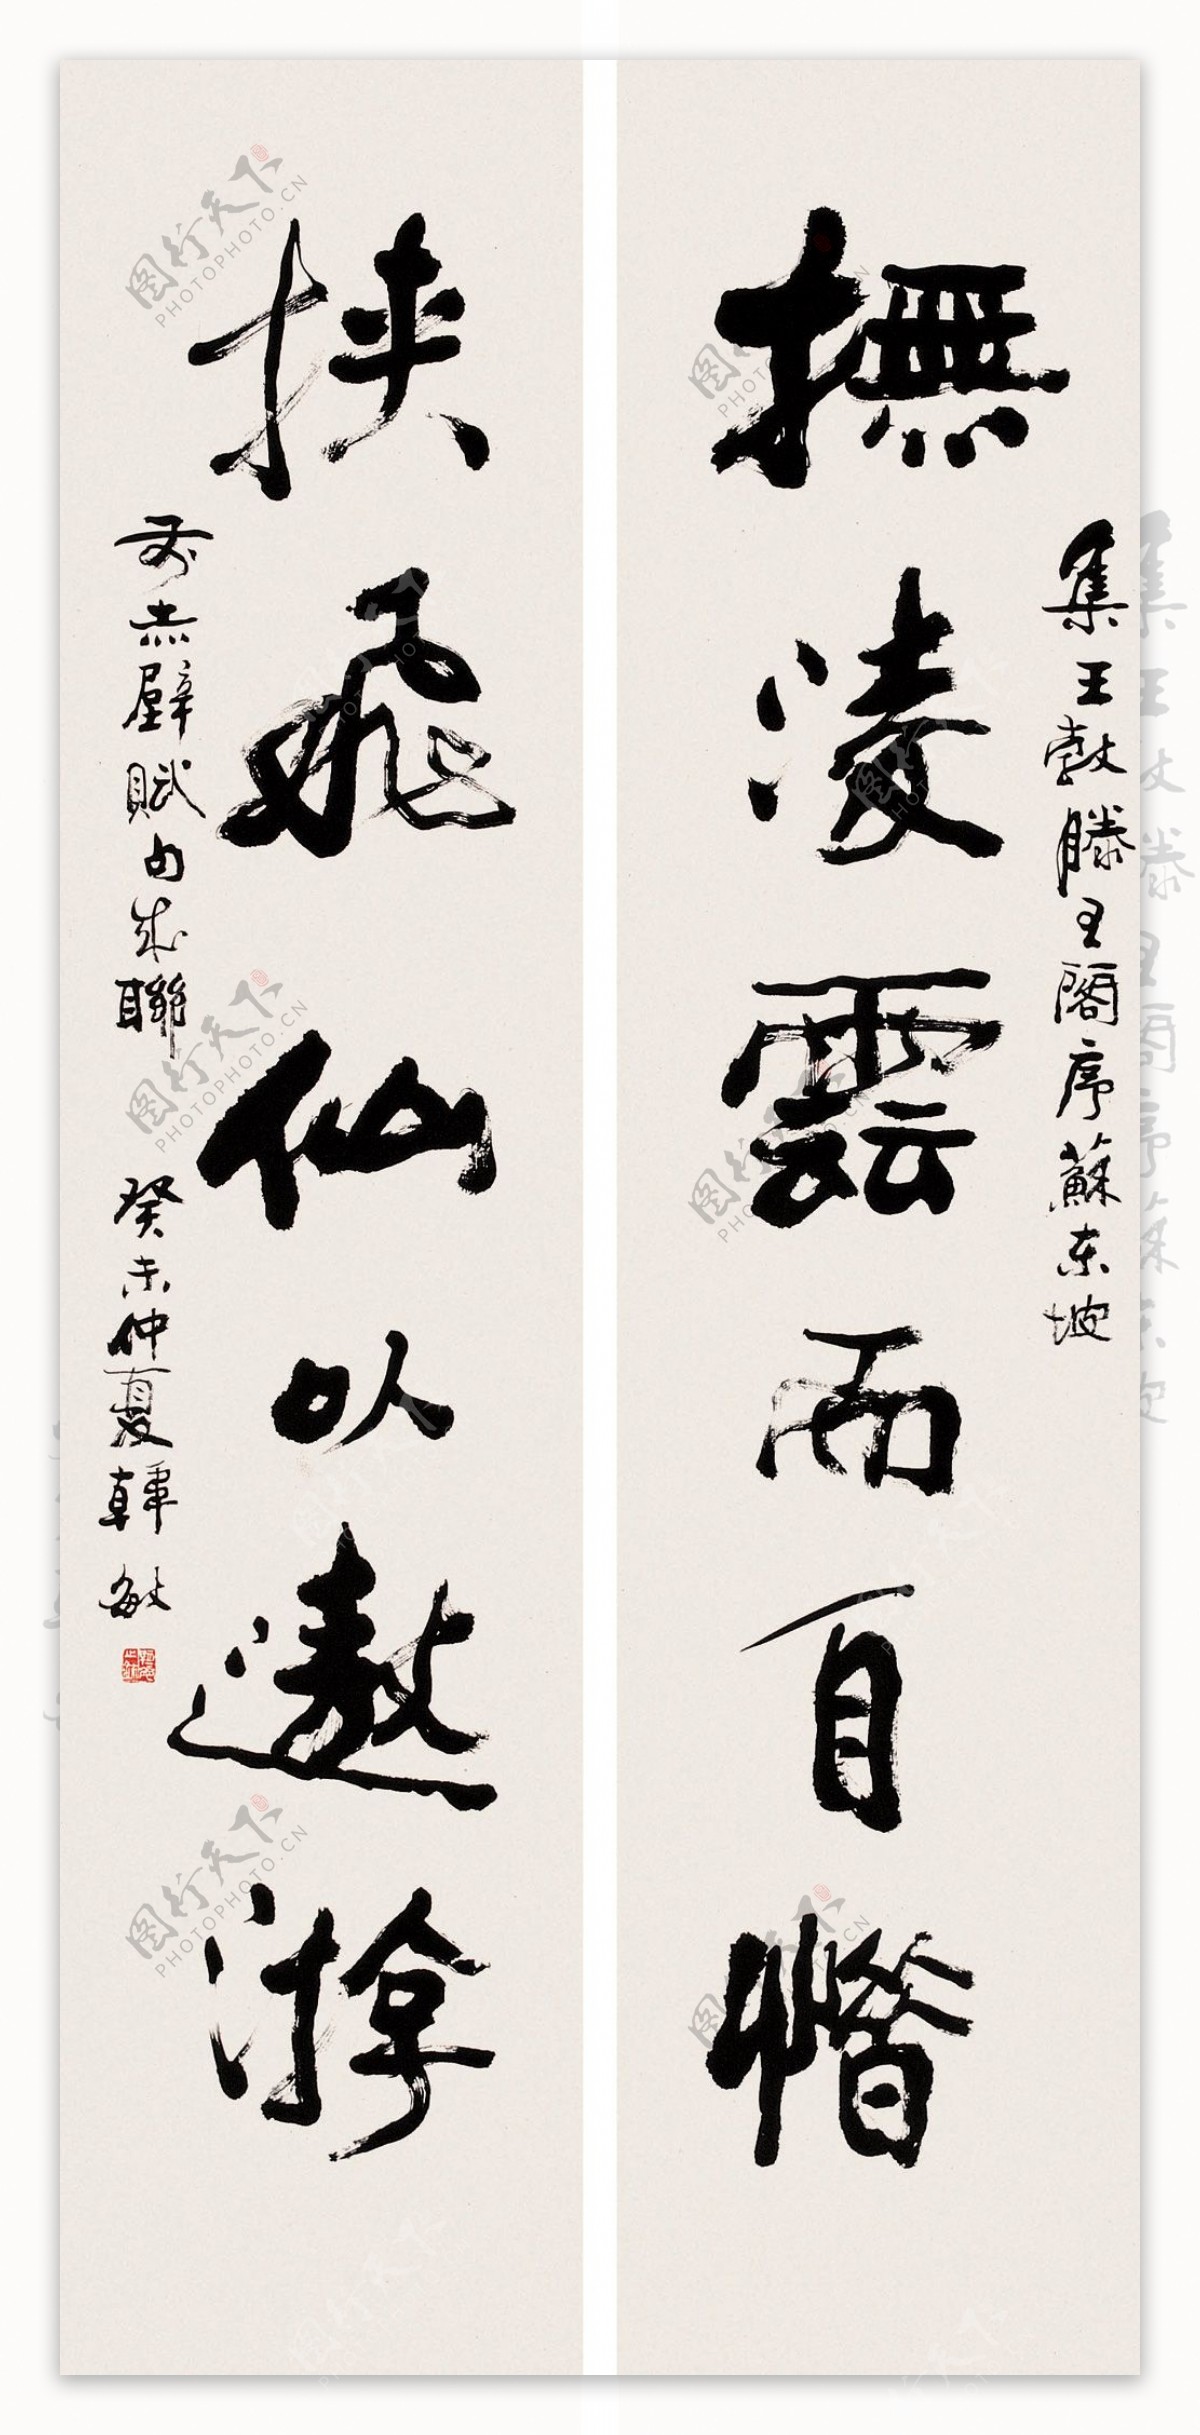 撫凌雲而自惜
集王勃滕王閣序蘇東坡
挾飛仙以遨游
前赤壁賦句成聯 癸未仲夏韓敏
图行天下
PHOTOPHOTO.CN